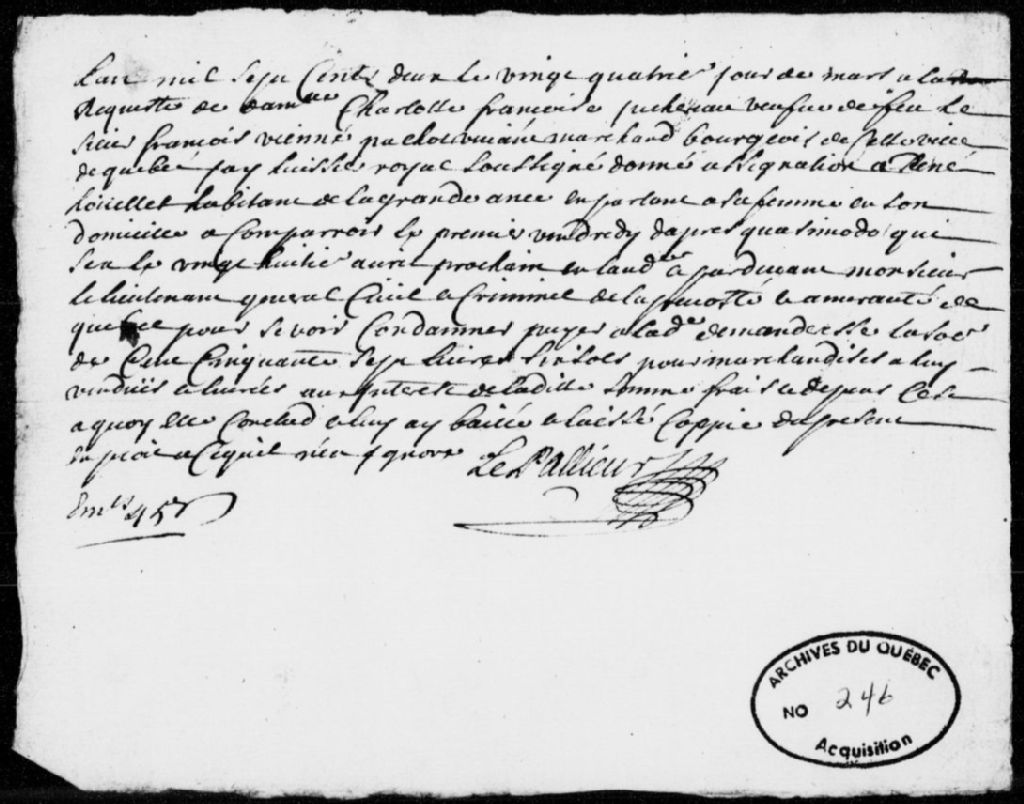 Lan mil sept Cents deux le vingt quatrie jour de mars a la
Requeste de dam.lle Charlotte francoise juchereau veufue de feu le
sieur francois vienné pachot vivant marchand bourgeois de Cette ville
de quebec jay huissie royal soussigné donné assignation a René
houellet habitant de la grande ance en parlant a sa femme en son
domicille a Comparroir le premier vendredy dapres quasimodo qui
sera le vingt huitie auril prochain en laud.ce & pardeuant monsieur
le lieutenant general Ciuil & Criminel de la preuosté & amirauté de
quebec pour se voir Condamner payer a lad.e demanderesse la som
de Cent Cinquante sept liures six sols pour marchandises a luy
venduës & liurées aux Interests de laditte somme frais & depens Cest
a quoy elle Conclud & luy ay baillé & laissé Coppie du present
exploit a Ce quil nen jgnore LePallieur
Em.ts 45s
ARCHIVES DU QUÉBEC
NO 246
Acquisition